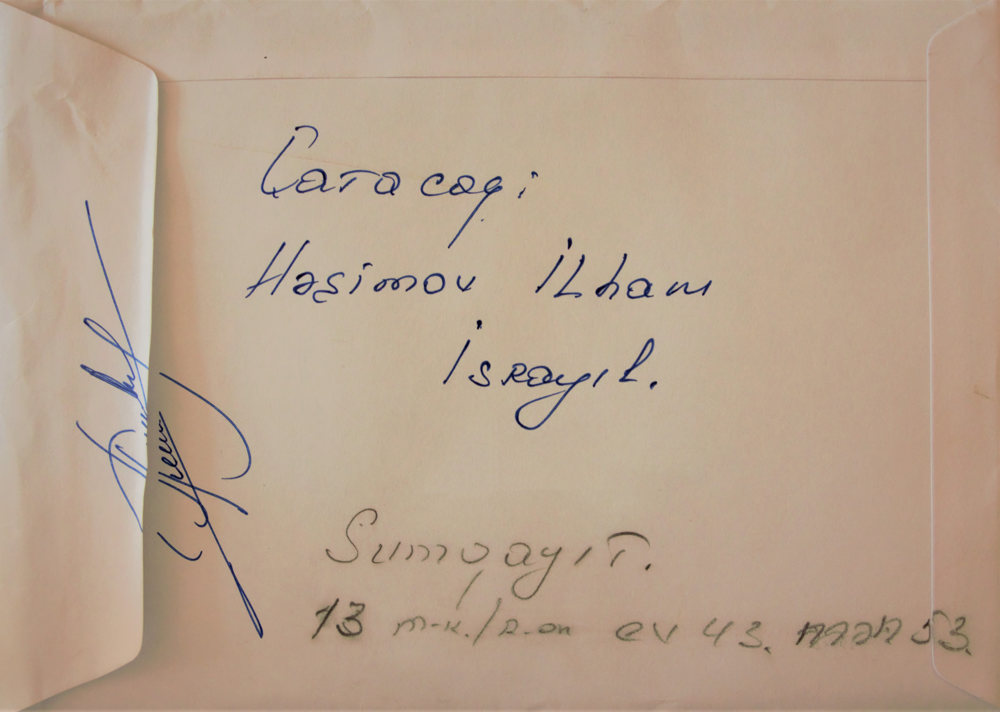 Çatacaqi
Həşimov İlham
İsrayıl.
Sumqayıt.
13 m-k./R-on ev 43. 53.